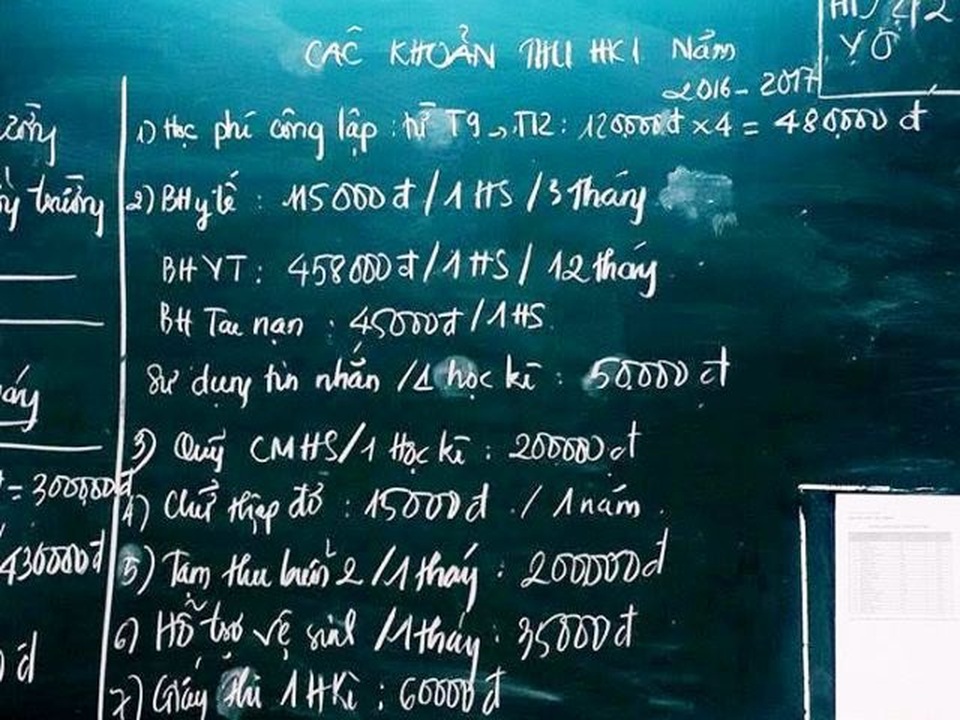 CÁC KHOẢN THU HK1 Năm
2016 - 2017
1) Học phí công lập : từ T9 → T12 : 120000đ x 4 = 480,000 đ
2) BH y tế : 115000đ / 1 HS / 3 tháng
BHYT : 458000đ / 1 HS / 12 tháng
BH Tai nạn : 45000đ / 1 HS
Sử dụng tin nhắn / 1 học kì : 50000 đ
3) Quỹ CMHS / 1 Học kì : 200000 đ
4) Chữ thập đỏ : 15000đ / 1 năm .
5) Tạm thu buổi 2 / 1 tháng : 200000đ
6) Hỗ trợ vệ sinh / 1 tháng : 35000đ
7) Giấy thi 1 HKì : 60000đ
trường
= 300,000đ
430000đ
đ